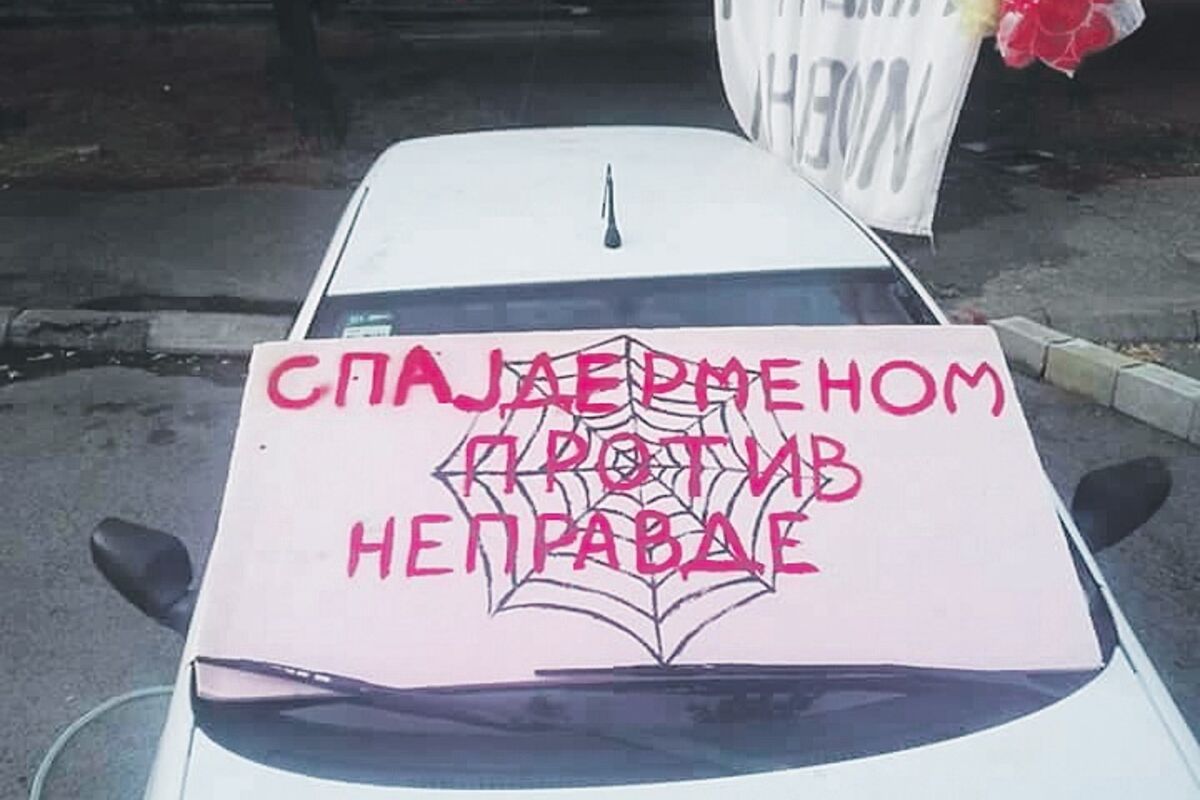 СПАЈДЕРМЕНОМ
ПРОТИВ
НЕПРАВДЕ